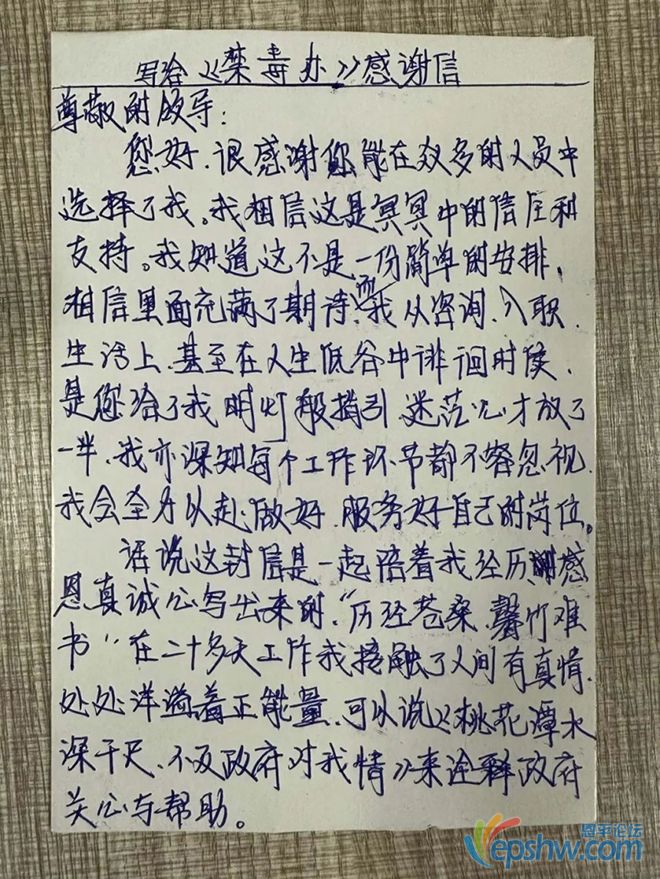 写给《禁毒办》感谢信
尊敬的领导:
您好.很感谢您能在众多的人员中
选择了我。我相信这是冥冥中的信任和
支持。我知道这不是一份简单的安排,
相信里面充满了期待,而我从咨询、入职、
生活上、甚至在人生低谷中徘徊时候、
是您给了我明灯般指引,迷茫心才放了
一半,我亦深知每个工作环节都不容忽视,
我会全力以赴做好,服务好自己的岗位。
话说这封信是一起陪着我经历感
恩真诚心写出来的,"历经苍桑、馨竹难
书"在二十多天工作我接触了人间有真情,
处处洋溢着正能量,可以说《桃花潭水
深千尺、不及政府对我情》来诠释政府
关心与帮助。
恩平论坛
epshw.com